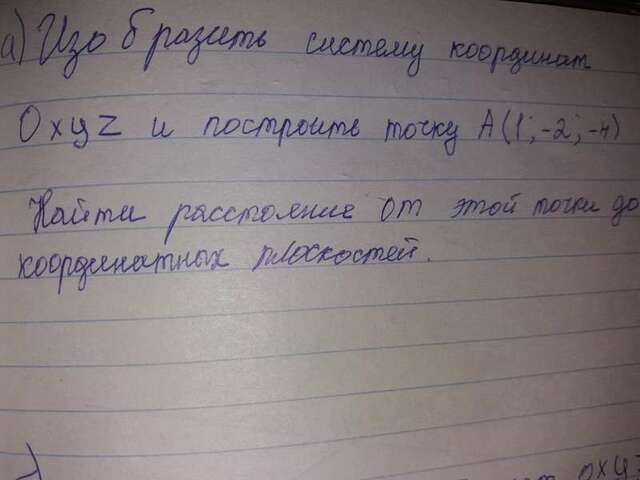 а) Изобразить систему координат
Oxyz и построить точку A(1; -2; -4)
Найти расстояние от этой точки до
координатных плоскостей.
oxyz